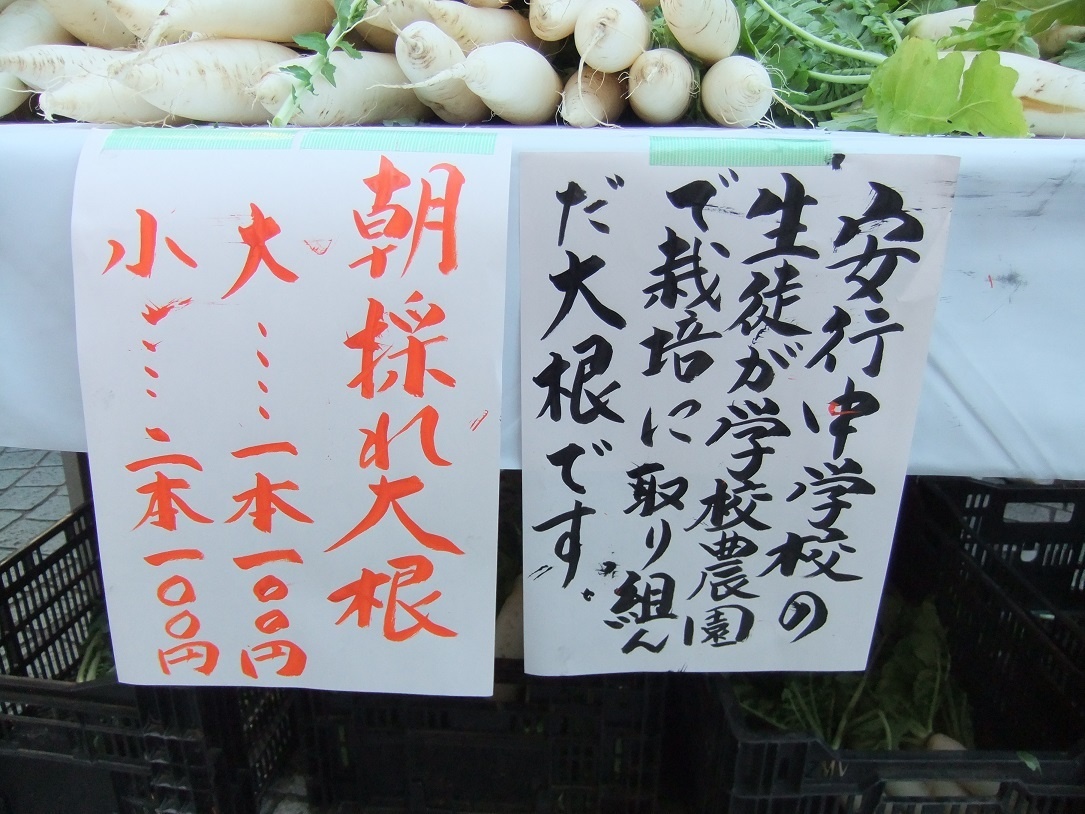 安行中学校の
生徒が学校農園
で栽培に取り組ん
だ大根です。
朝採れ大根
大……一本一〇〇円
小……二本一〇〇円